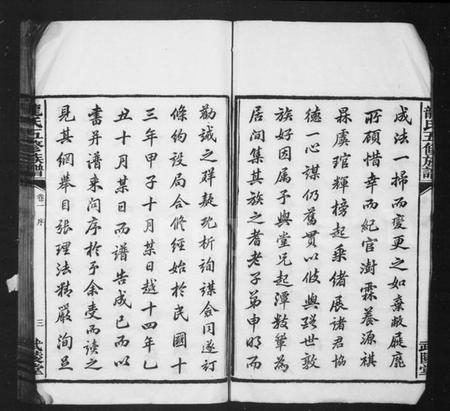 龍氏五修族譜
武陵堂
成法一掃而變更之如棄敝屣靡
所顧惜幸而紀官澍霖養源祺
霖虞琯輝榜起乘緒辰諸君協
德一心謀仍舊貫以收與踐世敦
族好因屬予與堂兄起潭敦肇為
居間集其族之耆老子弟申明而
勸誡之群欵允析詢謀僉同遂訂
條約設局合修經始於民國十
三年甲子十月某日越十四年乙
丑十月某日而譜告成已而以
書并譜來問序於予余受而讀之
見其綱舉目張理法精嚴洵足
龍氏五修族譜
卷一 序
三
武陵堂